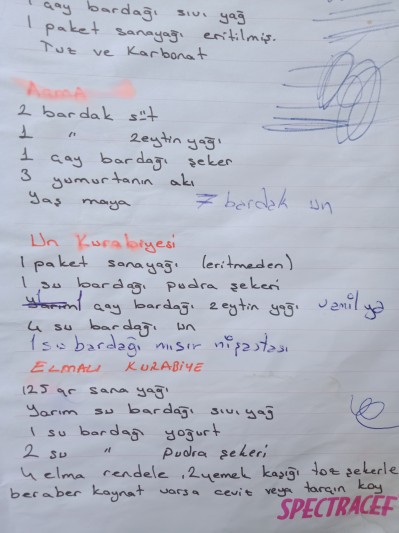 1 çay bardağı sıvı yağ
1 paket sanayağı eritilmiş.
Tuz ve Karbonat
2 bardak süt
1 " zeytin yağı
1 çay bardağı şeker
3 yumurtanın akı
yaş maya 7 bardak un
Un Kurabiyesi
1 paket sanayağı (eritmeden)
1 su bardağı pudra şekeri
1 çay bardağı zeytin yağı vanilya
4 su bardağı un
1 su bardağı mısır nişastası
ELMALI KURABİYE
125 gr sana yağı
Yarım su bardağı sıvı yağ
1 su bardağı yoğurt
2 su " pudra şekeri
4 elma rendele, 2 yemek kaşığı toz şekerle
beraber kaynat varsa ceviz veya tarçın koy
SPECTRACEF